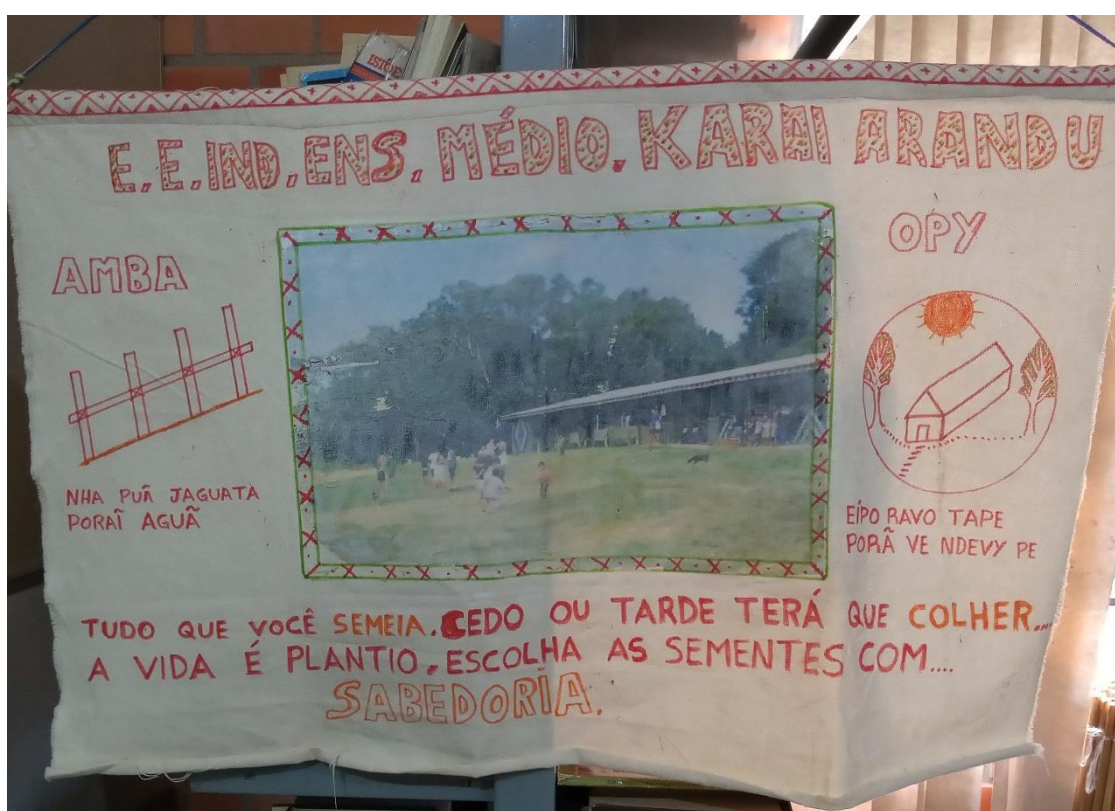 ISTOÉ
E. E. IND. ENS. MÉDIO. KARAI ARANDU
AMBA
OPY
NHA PUÃ JAGUATA
PORAĨ AGUÃ
EÍPO RAVO TAPE
PORÃ VE NDEVY PE
TUDO QUE VOCÊ SEMEIA. CEDO OU TARDE TERÁ QUE COLHER....
A VIDA É PLANTIO, ESCOLHA AS SEMENTES COM....
SABEDORIA.